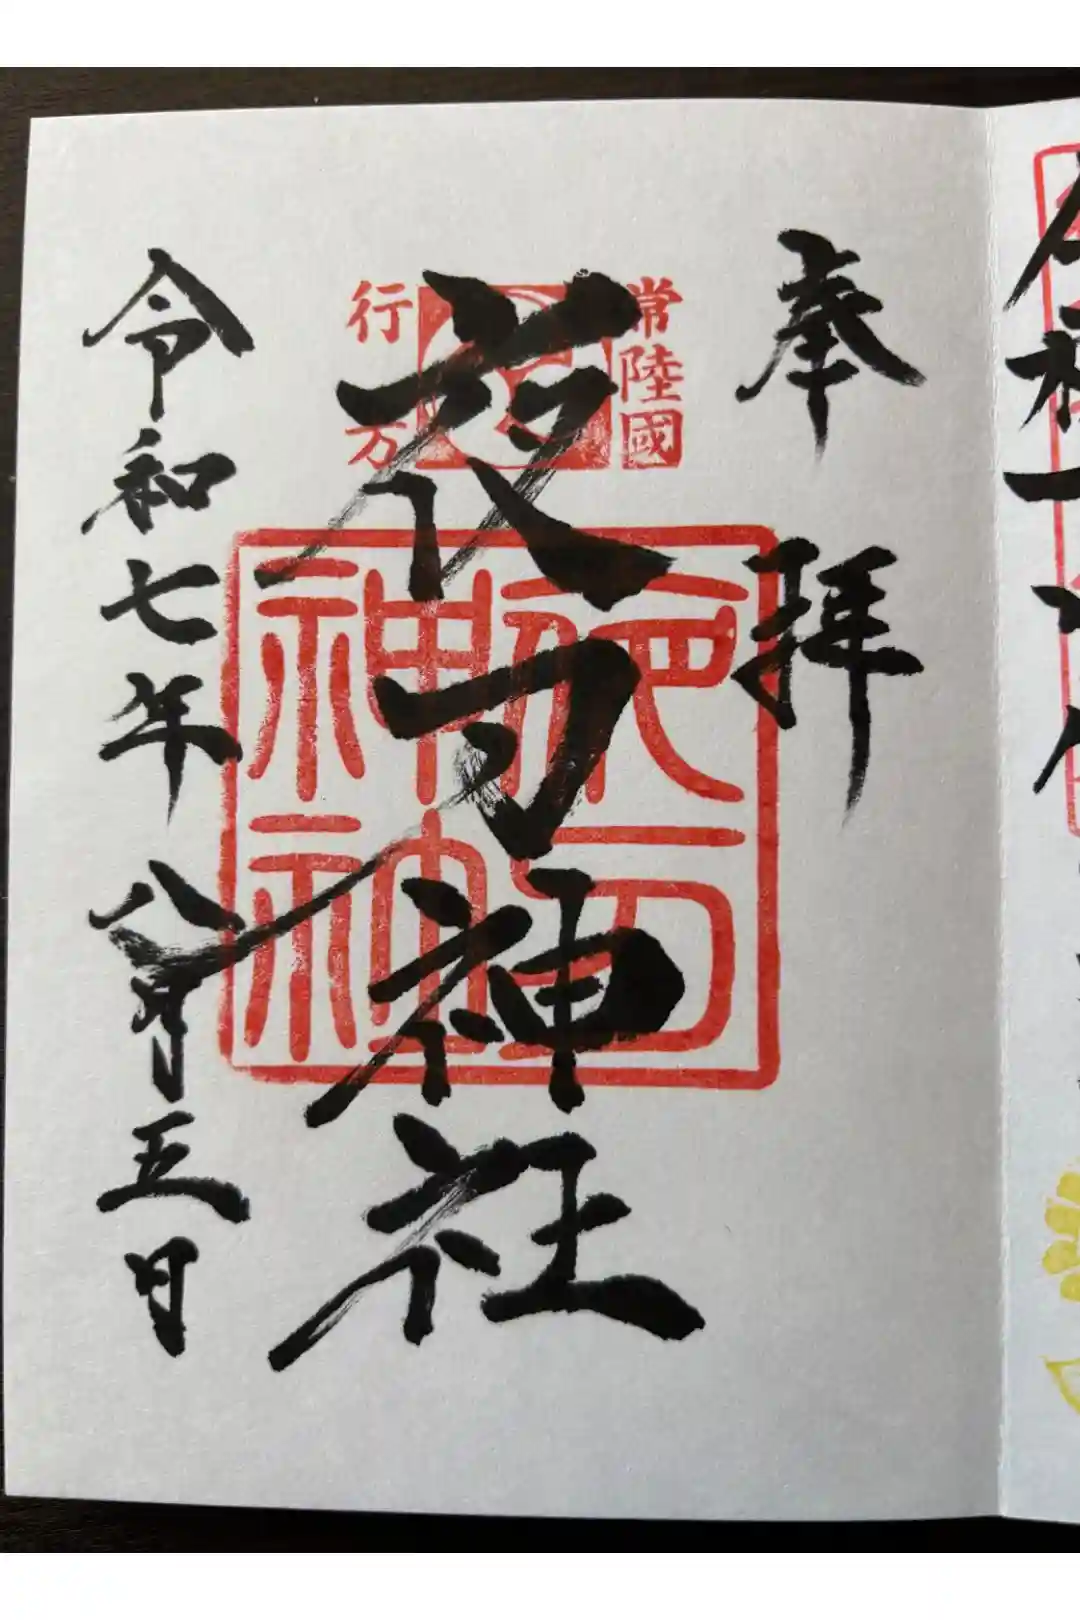 奉拝
常陸國
行方
夜刀神社
令和七年八月五日